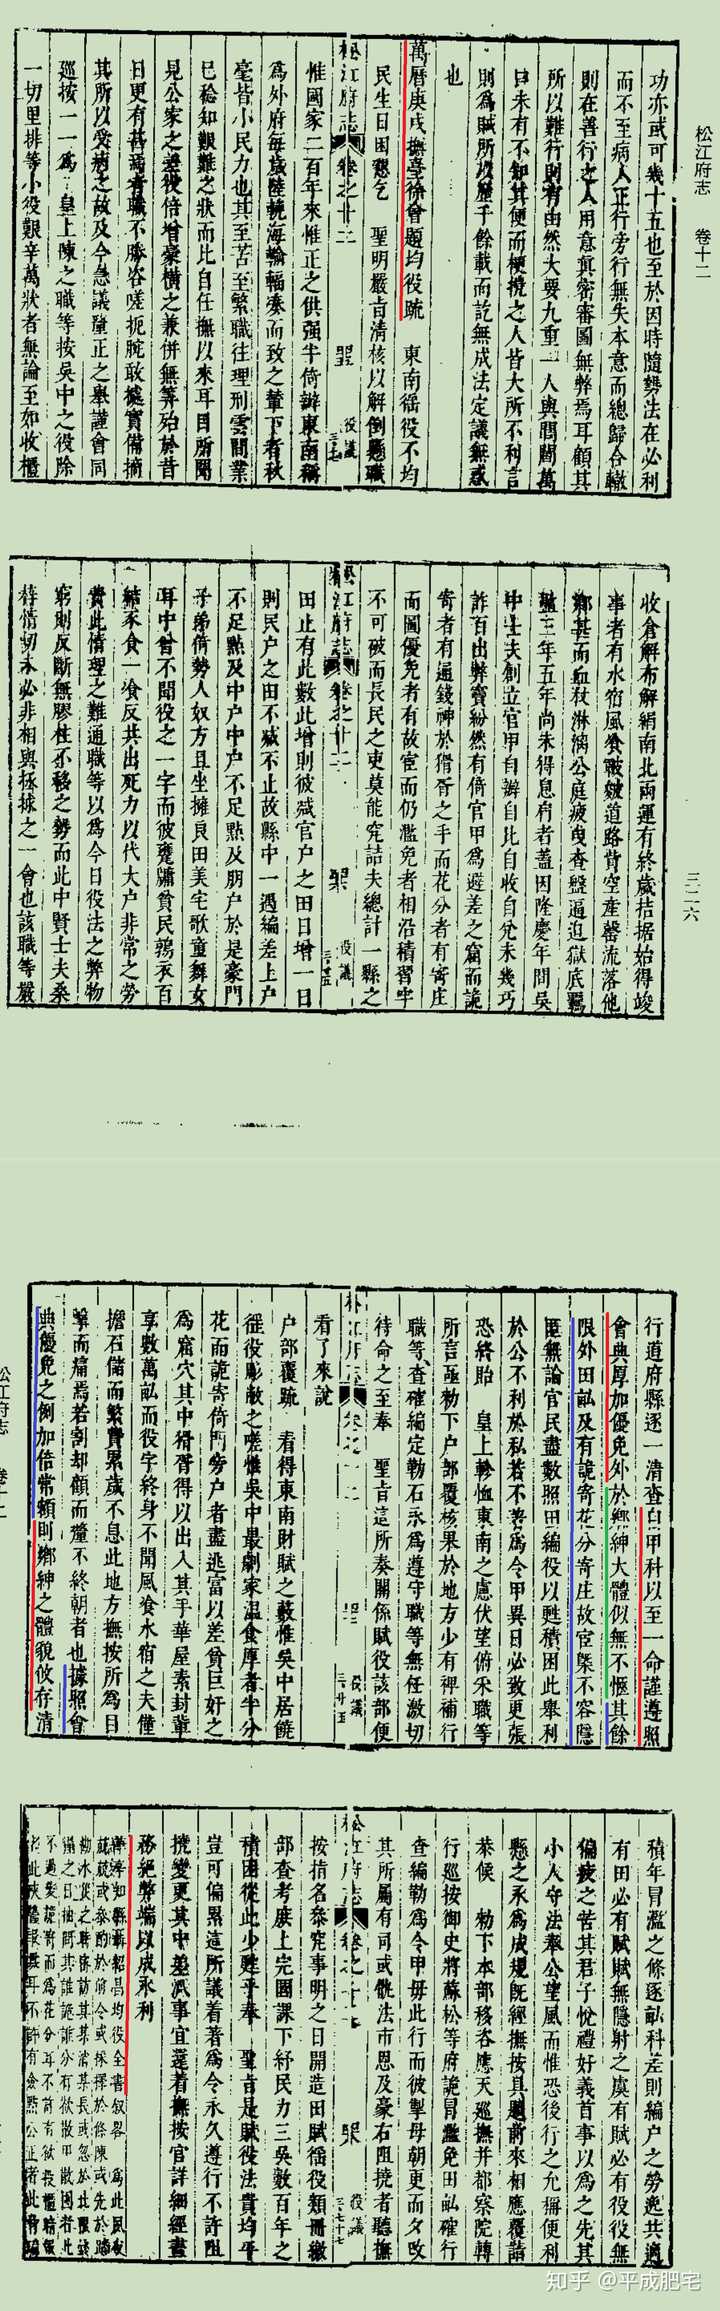 松江府志　卷十二
功亦或可幾十五也至於因時隨勢法在必利
而不至病人正行旁行無失本意而總歸合轍
則在善行之人用意眞密審圖無弊焉耳顧其
所以難行則有由然大要九重一人與閭閻萬
口未有不知其便而梗撓之人皆大所不利言
則爲賦所攷歷千餘載而訖無成法定議無惑
也
萬曆庚戌撫臺徐會題均役䟽　東南徭役不均
民生日困懇乞　聖明嚴旨清核以解倒懸職
松江府志　卷之十二　役議
惟國家二百年來惟正之供强半倚辦東南稱
爲外府每歲陸輓海輸輻湊而致之輦下者秋
毫皆小民力也其至苦至繁職往理刑雲間業
已稔知艱難之狀而比自任撫以來耳目所聞
見公家之差役倍增豪橫之兼併無等殆於昔
日更有甚焉者職不勝咨嗟扼腕敢摭實備摘
其所以受病之故及今急議釐正之舉謹會同
廵按一一爲　皇上陳之職等按吳中之役除
一切里排等小役艱辛萬狀者無論至如收櫃
收倉解布解絹南北兩運有終歲拮据始得竣
事者有水宿風飡皸皴道路貲空產罄流落他
鄉甚而血杖淋漓公庭疲曳查盤逼迫獄底羈
三年五年尚未得息肩者蓋因隆慶年間吳
中士夫創立官甲自辦自比自收自兌未幾巧
詐百出弊竇紛然有倚官甲爲避差之窟而詭
寄者有逼錢神於猾胥之手而花分者有寄庄
而圖優免者有故宦而仍濫免者相沿積習牢
不可破而長民之吏莫能究詰夫總計一縣之
松江府志　卷之十二　役議
田止有此數此增則彼減官户之田日增一日
則民户之田不減不止故縣中一遇編差上户
不足點及中户中户不足點及朋户於是豪門
子弟倚勢人奴方且坐擁良田美宅歌童舞女
耳中曾不聞役之一字而彼甕牖貧民鶉衣百
結豕食一飡反共出死力以代大户非常之勞
費此情理之難通職等以爲今日役法之弊物
窮則反斷無膠柱不移之勢而此中賢士夫桑
梓情切未必非相與拯捄之一會也該職等嚴
三二六
行道府縣逐一清查自甲科以至一命謹遵照
會典厚加優免外於鄉紳大體似無不愜其餘
限外田畆及有詭寄花分寄庄故宦槩不容隱
匿無論官民盡數照田編役以甦積困此舉利
於公不利於私若不著爲令甲異日必致更張
恐終貽　皇上軫恤東南之慮伏望俯采職等
所言亟勑下户部覆核果於地方少有裨補行
職等查確編定勒石永爲遵守職等無任激切
待命之至奉　聖旨這所奏關係賦役該部便
松江府志　卷之十二　役議
看了來說
户部覆䟽　看得東南財賦之藪惟吳中居饒
徭役彫敝之嗟惟吳中最劇家温食厚者半分
花而詭寄倚門旁户者盡逃富以差貧巨奸之
爲窟穴其中猾胥得以出入其手華屋素封輩
享數萬畆而役字終身不聞風飡水宿之夫僅
擔石儲而繁費累歲不息此地方撫按所爲目
擊而痛焉若割却顧而釐不終朝者也據照會
典優免之例加倍常額則鄉紳之體貌攸存清
松江府志　卷十二
積年冒濫之條逐畆科差則編户之勞逸共適
有田必有賦賦無隱射之虞有賦必有役役無
偏疲之苦其君子悅禮好義首事以爲之先其
小人守法奉公望風而惟恐後行之允稱便利
懸之永爲成規旣經撫按具題前來相應覆請
恭候　勑下本部移咨應天廵撫并都察院轉
行廵按御史將蘇松等府詭冒濫免田畆確行
查編勒爲令甲毋此行而彼掣毋朝更而夕改
其所屬有司或骫法市恩及豪右阻撓者聽撫
松江府志　卷之十二　役議
按指名叅究事明之日開造田賦徭役類冊繳
部查考庶上完國課下紓民力三吳數百年之
積困從此少甦乎奉　聖旨是賦役法貴均平
豈可偏累這所議着著爲令永久遵行不許阻
撓變更其中差派事宜還着撫按官詳細經畫
務絕弊端以成永利
知乎 @平成肥宅